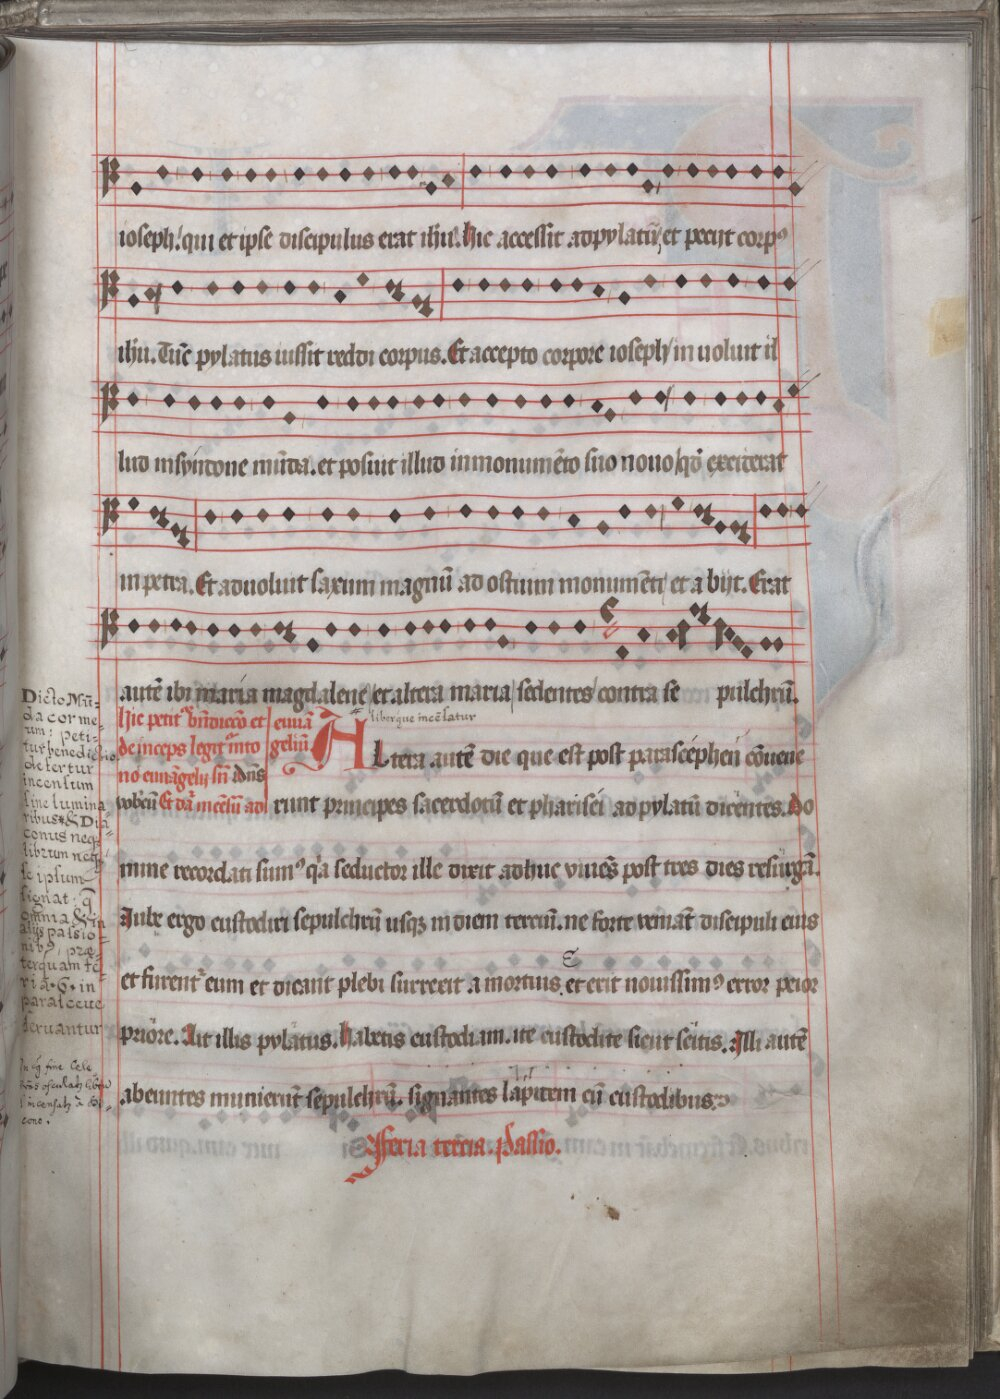 ioseph. qui et ipse discipulus erat ihu. Hic accessit ad pylatū et peciit corpꝰ
ihu. Tūc pylatus iussit reddi corpus. Et accepto corpore ioseph inuoluit il
lud in syndone mūda. et posuit illud in monumēto suo nouo qd̄ exciderat
in petra. Et aduoluit saxum magnū ad ostium monumēti et abijt. Erat
autē ibi maria magdalene et altera maria sedentes contra se pulchrū.
hic petit bn̄dicciō et
deinceps legit in to
no euāgelij sn̄ dn̄s
vobcū Et dā incēsū ad
euuā
geliū
liberque incēsatur
Altera autē die que est post parascephen cōuene
runt principes sacerdotū et pharisei ad pylatū dicentes. Do
mine recordati sumꝰ qa seductor ille dixit adhuc viuēs post tres dies resurgā.
Iube ergo custodiri sepulchrū usqꝫ in diem terciū. ne forte veniāt discipuli eius
et furent eum et dicant plebi surrexit a mortuis et erit nouissimꝰ error peior
priore. Ait illis pylatus. Habetis custodiam. ite custodite sicut scitis. Illi autē
abeuntes munierūt sepulchrū. signantes lapidem cū custodibus.
Feria tercia. Passio.
Dicto Mū-
da cor me-
um: peti-
tur benedictio
detertur
incensum
sine lumina
ribus: & Dia-
conus neqꝫ
librum neqꝫ
se ipsum
signat. q̄
omnia & in
alijs passio-
nibꝰ, præ-
terquam fe-
riā. 6. in
parasceue
seruantur